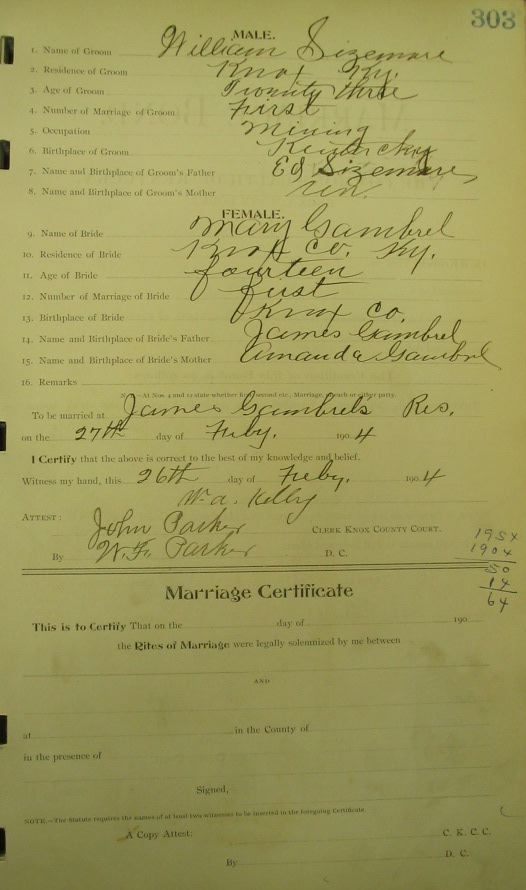 303
MALE.
1. Name of Groom William Sizemore
2. Residence of Groom Knox Ky.
3. Age of Groom Twenty three
4. Number of Marriage of Groom First
5. Occupation Mining
6. Birthplace of Groom Kentucky
7. Name and Birthplace of Groom's Father Ed Sizemore
8. Name and Birthplace of Groom's Mother
FEMALE.
9. Name of Bride Mary Gambrel
10. Residence of Bride Knox Co. Ky.
11. Age of Bride fourteen
12. Number of Marriage of Bride first
13. Birthplace of Bride Knox Co.
14. Name and Birthplace of Bride's Father James Gambrel
15. Name and Birthplace of Bride's Mother Amanda Gambrel
16. Remarks
Note—At Nos 4 and 12 state whether first, second etc., Marriage of each or either party.
To be married at James Gambrels Res.
on the 27th day of Feby. 1904
I Certify that the above is correct to the best of my knowledge and belief.
Witness my hand, this 26th day of Feby. 1904
W. A. Kelly
ATTEST: John Parker CLERK KNOX COUNTY COURT.
By W. F. Parker D. C.
1954
1904
50
14
64
Marriage Certificate
This is to Certify That on the day of 190
the Rites of Marriage were legally solemnized by me between
AND
at in the County of
in the presence of
Signed,
NOTE.—The Statute requires the names of at least two witnesses to be inserted in the foregoing Certificate.
A Copy Attest: C. K. C. C.
By D. C.